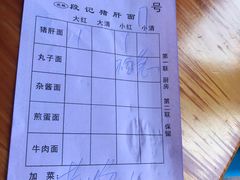 段记猪肝面 号
大红 大清 小红 小清
猪肝面
丸子面
杂酱面
煎蛋面
牛肉面
加菜：
第一联 厨房 第二联 保留